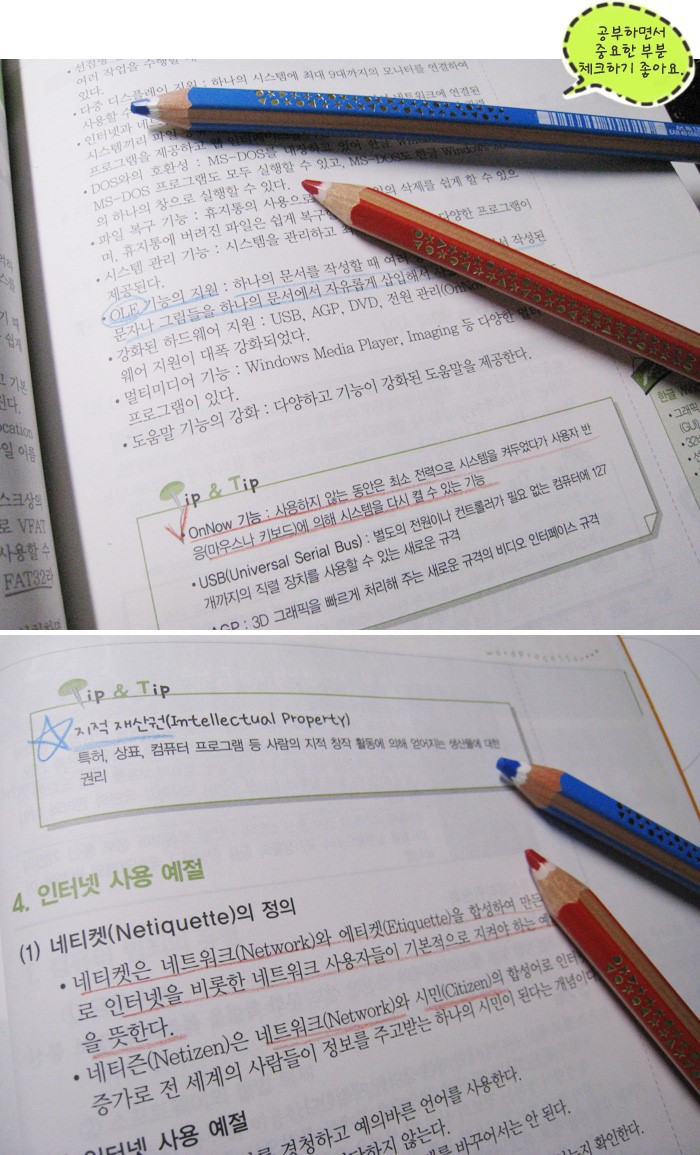 공부하면서
중요한 부분
체크하기 좋아요.
여러 작업을 수행할
있다.
다중 디스플레이 지원 : 하나의 시스템에 최대 9대까지의 모니터를 연결하여
사용할 수
네트워크에 연결된
• 인터넷과
시스템끼리 파일
프로그램을 제공하고
• DOS와의 호환성 : MS-DOS를 내장하고 있어 한글
MS-DOS 프로그램도 모두 실행할 수 있고, MS-DOS도 한글 Windows
의 하나의 창으로 실행할 수 있다.
• 파일 복구 기능 : 휴지통의 사용으로
의 삭제를 쉽게 할 수 있으
며, 휴지통에 버려진 파일은 쉽게 복구
• 시스템 관리 기능 : 시스템을 관리하고
다양한 프로그램이
제공된다.
• OLE 기능의 지원 : 하나의 문서를 작성할 때 여러
서 작성된
문자나 그림들을 하나의 문서에서 자유롭게 삽입해서
• 강화된 하드웨어 지원 : USB, AGP, DVD, 전원 관리(OnNow
웨어 지원이 대폭 강화되었다.
• 멀티미디어 기능 : Windows Media Player, Imaging 등 다양한 멀티
프로그램이 있다.
• 도움말 기능의 강화 : 다양하고 기능이 강화된 도움말을 제공한다.
Tip & Tip
OnNow 기능 : 사용하지 않는 동안은 최소 전력으로 시스템을 켜두었다가 사용자 반
응(마우스나 키보드)에 의해 시스템을 다시 켤 수 있는 기능
• USB(Universal Serial Bus) : 별도의 전원이나 컨트롤러가 필요 없는 컴퓨터에 127
개까지의 직렬 장치를 사용할 수 있는 새로운 규격
AGP : 3D 그래픽을 빠르게 처리해 주는 새로운 규격의 비디오 인터페이스 규격
기본
location
일 이름
스크상의
로 VFAT
사용할 수
FAT32라
한글
• 그래픽
(GUI)
• 32
Tip & Tip
지적 재산권(Intellectual Property)
특허, 상표, 컴퓨터 프로그램 등 사람의 지적 창작 활동에 의해 얻어지는 생산물에 대한
권리
4. 인터넷 사용 예절
(1) 네티켓(Netiquette)의 정의
• 네티켓은 네트워크(Network)와 에티켓(Etiquette)을 합성하여 만든
로 인터넷을 비롯한 네트워크 사용자들이 기본적으로 지켜야 하는
을 뜻한다.
• 네티즌(Netizen)은 네트워크(Network)와 시민(Citizen)의 합성어로
증가로 전 세계의 사람들이 정보를 주고받는 하나의 시민이 된다는 개념이다.
인터넷 사용 예절
를 경청하고 예의바른 언어를 사용한다.
하지 않는다.
를 바꾸어서는 안 된다.
는지 확인한다.